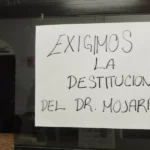 EXIGIMOS
LA
DESTITUCION
DEL DR.